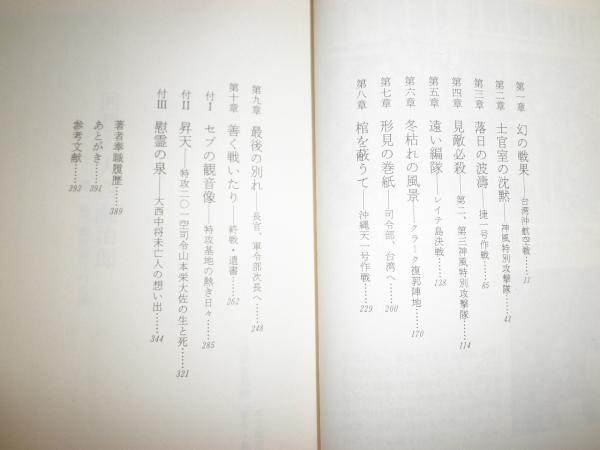 第一章 幻の戦果――台湾沖航空戦……11
第二章 士官室の沈黙――神風特別攻撃隊……42
第三章 落日の波濤――捷一号作戦……85
第四章 見敵必殺――第二、第三神風特別攻撃隊……114
第五章 遠い編隊――レイテ島決戦……138
第六章 冬枯れの風景――クラーク複郭陣地……170
第七章 形見の巻紙――司令部、台湾へ……200
第八章 棺を蔽うて――沖縄天一号作戦……229
第九章 最後の別れ――長官、軍令部次長へ……248
第十章 善く戦いたり――終戦・遺書……262
付Ⅰ セブの観音像――特攻基地の熱き日々……285
付Ⅱ 昇天――特攻二〇一空司令山本栄大佐の生と死……321
付Ⅲ 慰霊の泉――大西中将未亡人の想い出……344
著者奉職履歴……389
あとがき……391
参考文献……393